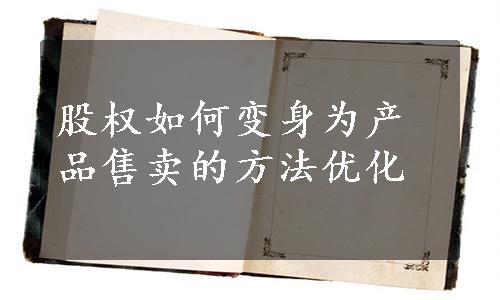 股权如何变身为产
品售卖的方法优化